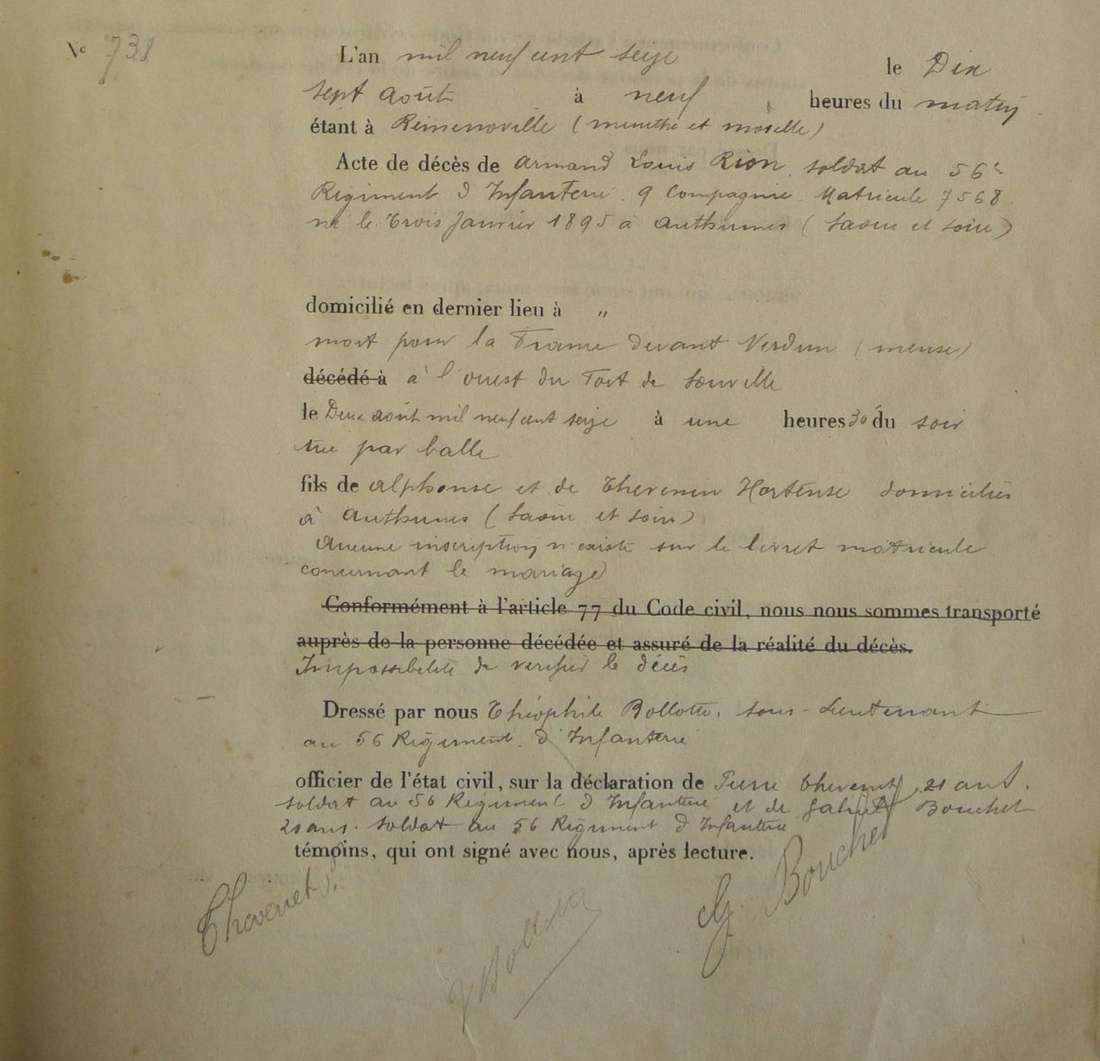 N° 731
L'an mil neuf cent seize le Dix
sept août à neuf heures du matin
étant à Rémenoville (meurthe et moselle)
Acte de décès de Armand Louis Rion, soldat au 56e
Régiment d'Infanterie. 9 Compagnie. Matricule 7568.
né le Trois Janvier 1895 à Authumes (Saone et Loire)
domicilié en dernier lieu à "
mort pour la France devant Verdun (meuse)
décédé à à l'ouest du Fort de Souville
le Deux août mil neuf cent seize à une heures 30 du soir
tué par balle
fils de Alphonse et de Thevenin Hortense domiciliés
à Authumes (Saone et Loire)
Aucune inscription n'existe sur le livret matricule
concernant le mariage
Conformément à l'article 77 du Code civil, nous nous sommes transporté
auprès de la personne décédée et assuré de la réalité du décès.
Impossibilité de vérifier le décès
Dressé par nous Théophile Bollotte, sous-Lieutenant
au 56 Régiment d'Infanterie
officier de l'état civil, sur la déclaration de Pierre Thevenet, 21 ans.
soldat au 56 Régiment d'Infanterie et de Bouchet
20 ans. soldat au 56 Régiment d'Infanterie
témoins, qui ont signé avec nous, après lecture.
Thevenet P. Bollotte G. Bouchet